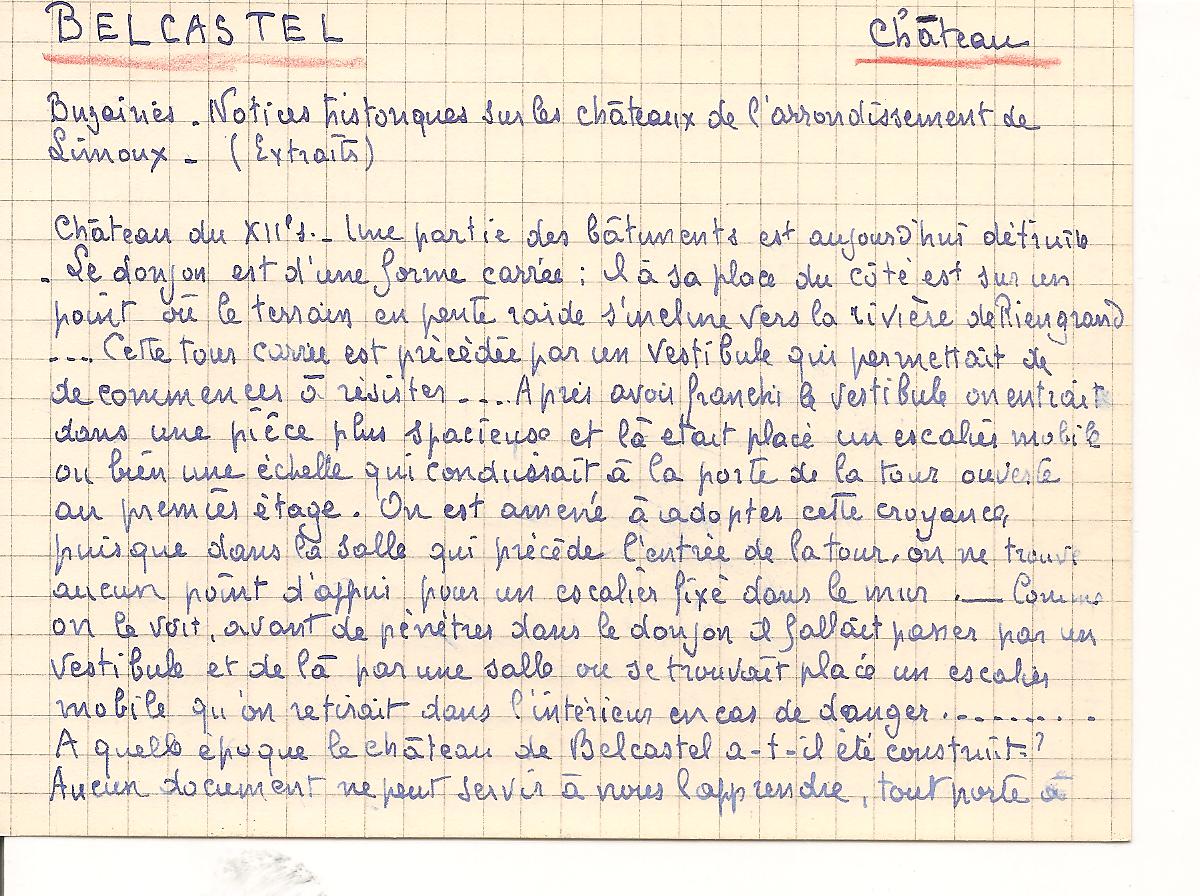 BELCASTEL Château
Buzairies. Notices historiques sur les châteaux de l'arrondissement de
Limoux - (Extraits)
Château du XIIe s. - Une partie des bâtiments est aujourd'hui détruite
- Le donjon est d'une forme carrée ; il à sa place du côté est sur un
point où le terrain en pente raide s'incline vers la rivière de Rieugrand
.... Cette tour carrée est précédée par un vestibule qui permettait de
de commencer à résister .... Après avoir franchi le vestibule on entrait
dans une pièce plus spacieuse et là était placé un escalier mobile
ou bien une échelle qui conduisait à la porte de la tour ouverte
au premier étage. On est amené à adopter cette croyance,
puisque dans la salle qui précède l'entrée de la tour, on ne trouve
aucun point d'appui pour un escalier fixé dans le mur . — Comme
on le voit, avant de pénétrer dans le donjon il fallait passer par un
vestibule et de là par une salle ou se trouvait placé un escalier
mobile qu'on retirait dans l'intérieur en cas de danger .........
A quelle époque le château de Belcastel a-t-il été construit ?
Aucun document ne peut servir à nous l'apprendre, tout porte à